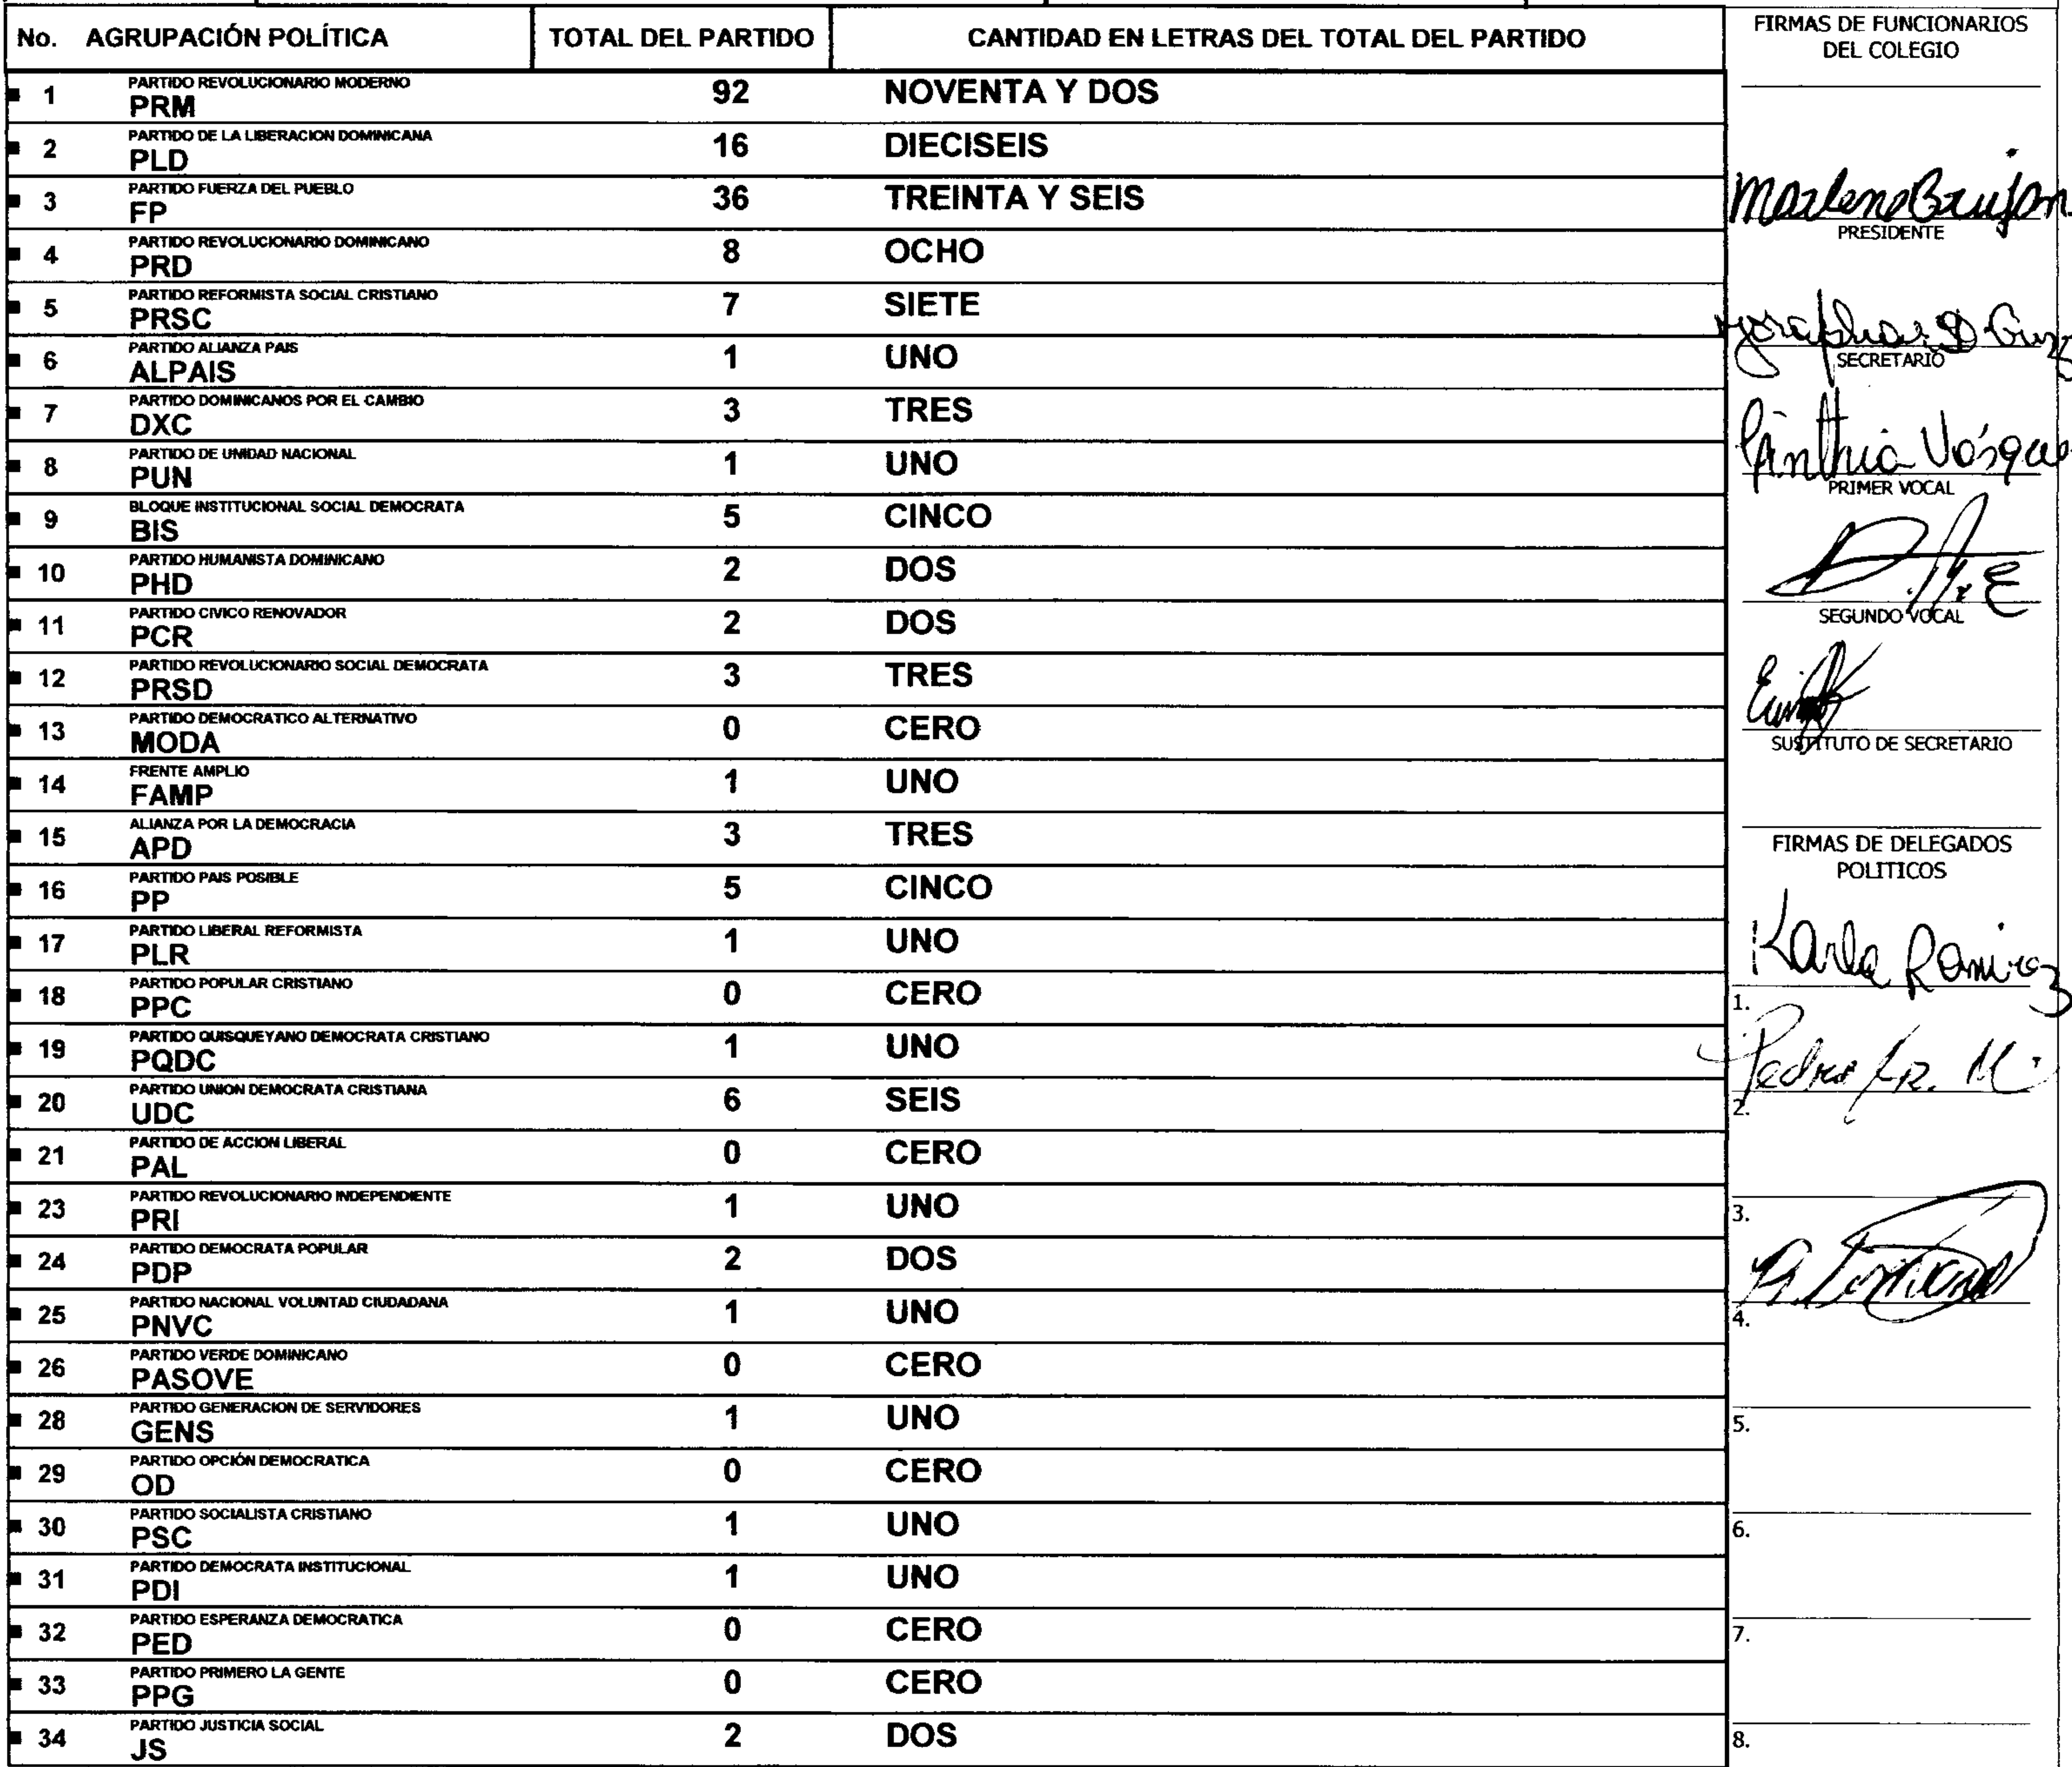 No. AGRUPACIÓN POLÍTICA TOTAL DEL PARTIDO CANTIDAD EN LETRAS DEL TOTAL DEL PARTIDO
1 PARTIDO REVOLUCIONARIO MODERNO
PRM 92 NOVENTA Y DOS
2 PARTIDO DE LA LIBERACION DOMINICANA
PLD 16 DIECISEIS
3 PARTIDO FUERZA DEL PUEBLO
FP 36 TREINTA Y SEIS
4 PARTIDO REVOLUCIONARIO DOMINICANO
PRD 8 OCHO
5 PARTIDO REFORMISTA SOCIAL CRISTIANO
PRSC 7 SIETE
6 PARTIDO ALIANZA PAIS
ALPAIS 1 UNO
7 PARTIDO DOMINICANOS POR EL CAMBIO
DXC 3 TRES
8 PARTIDO DE UNIDAD NACIONAL
PUN 1 UNO
9 BLOQUE INSTITUCIONAL SOCIAL DEMOCRATA
BIS 5 CINCO
10 PARTIDO HUMANISTA DOMINICANO
PHD 2 DOS
11 PARTIDO CIVICO RENOVADOR
PCR 2 DOS
12 PARTIDO REVOLUCIONARIO SOCIAL DEMOCRATA
PRSD 3 TRES
13 PARTIDO DEMOCRATICO ALTERNATIVO
MODA 0 CERO
14 FRENTE AMPLIO
FAMP 1 UNO
15 ALIANZA POR LA DEMOCRACIA
APD 3 TRES
16 PARTIDO PAIS POSIBLE
PP 5 CINCO
17 PARTIDO LIBERAL REFORMISTA
PLR 1 UNO
18 PARTIDO POPULAR CRISTIANO
PPC 0 CERO
19 PARTIDO QUISQUEYANO DEMOCRATA CRISTIANO
PQDC 1 UNO
20 PARTIDO UNION DEMOCRATA CRISTIANA
UDC 6 SEIS
21 PARTIDO DE ACCION LIBERAL
PAL 0 CERO
23 PARTIDO REVOLUCIONARIO INDEPENDIENTE
PRI 1 UNO
24 PARTIDO DEMOCRATA POPULAR
PDP 2 DOS
25 PARTIDO NACIONAL VOLUNTAD CIUDADANA
PNVC 1 UNO
26 PARTIDO VERDE DOMINICANO
PASOVE 0 CERO
28 PARTIDO GENERACION DE SERVIDORES
GENS 1 UNO
29 PARTIDO OPCIÓN DEMOCRATICA
OD 0 CERO
30 PARTIDO SOCIALISTA CRISTIANO
PSC 1 UNO
31 PARTIDO DEMOCRATA INSTITUCIONAL
PDI 1 UNO
32 PARTIDO ESPERANZA DEMOCRATICA
PED 0 CERO
33 PARTIDO PRIMERO LA GENTE
PPG 0 CERO
34 PARTIDO JUSTICIA SOCIAL
JS 2 DOS
FIRMAS DE FUNCIONARIOS
DEL COLEGIO
PRESIDENTE
SECRETARIO
PRIMER VOCAL
SEGUNDO VOCAL
SUSTITUTO DE SECRETARIO
FIRMAS DE DELEGADOS
POLITICOS
Karla Ramirez
1.
Pedro
2.
3.
4.
5.
6.
7.
8.